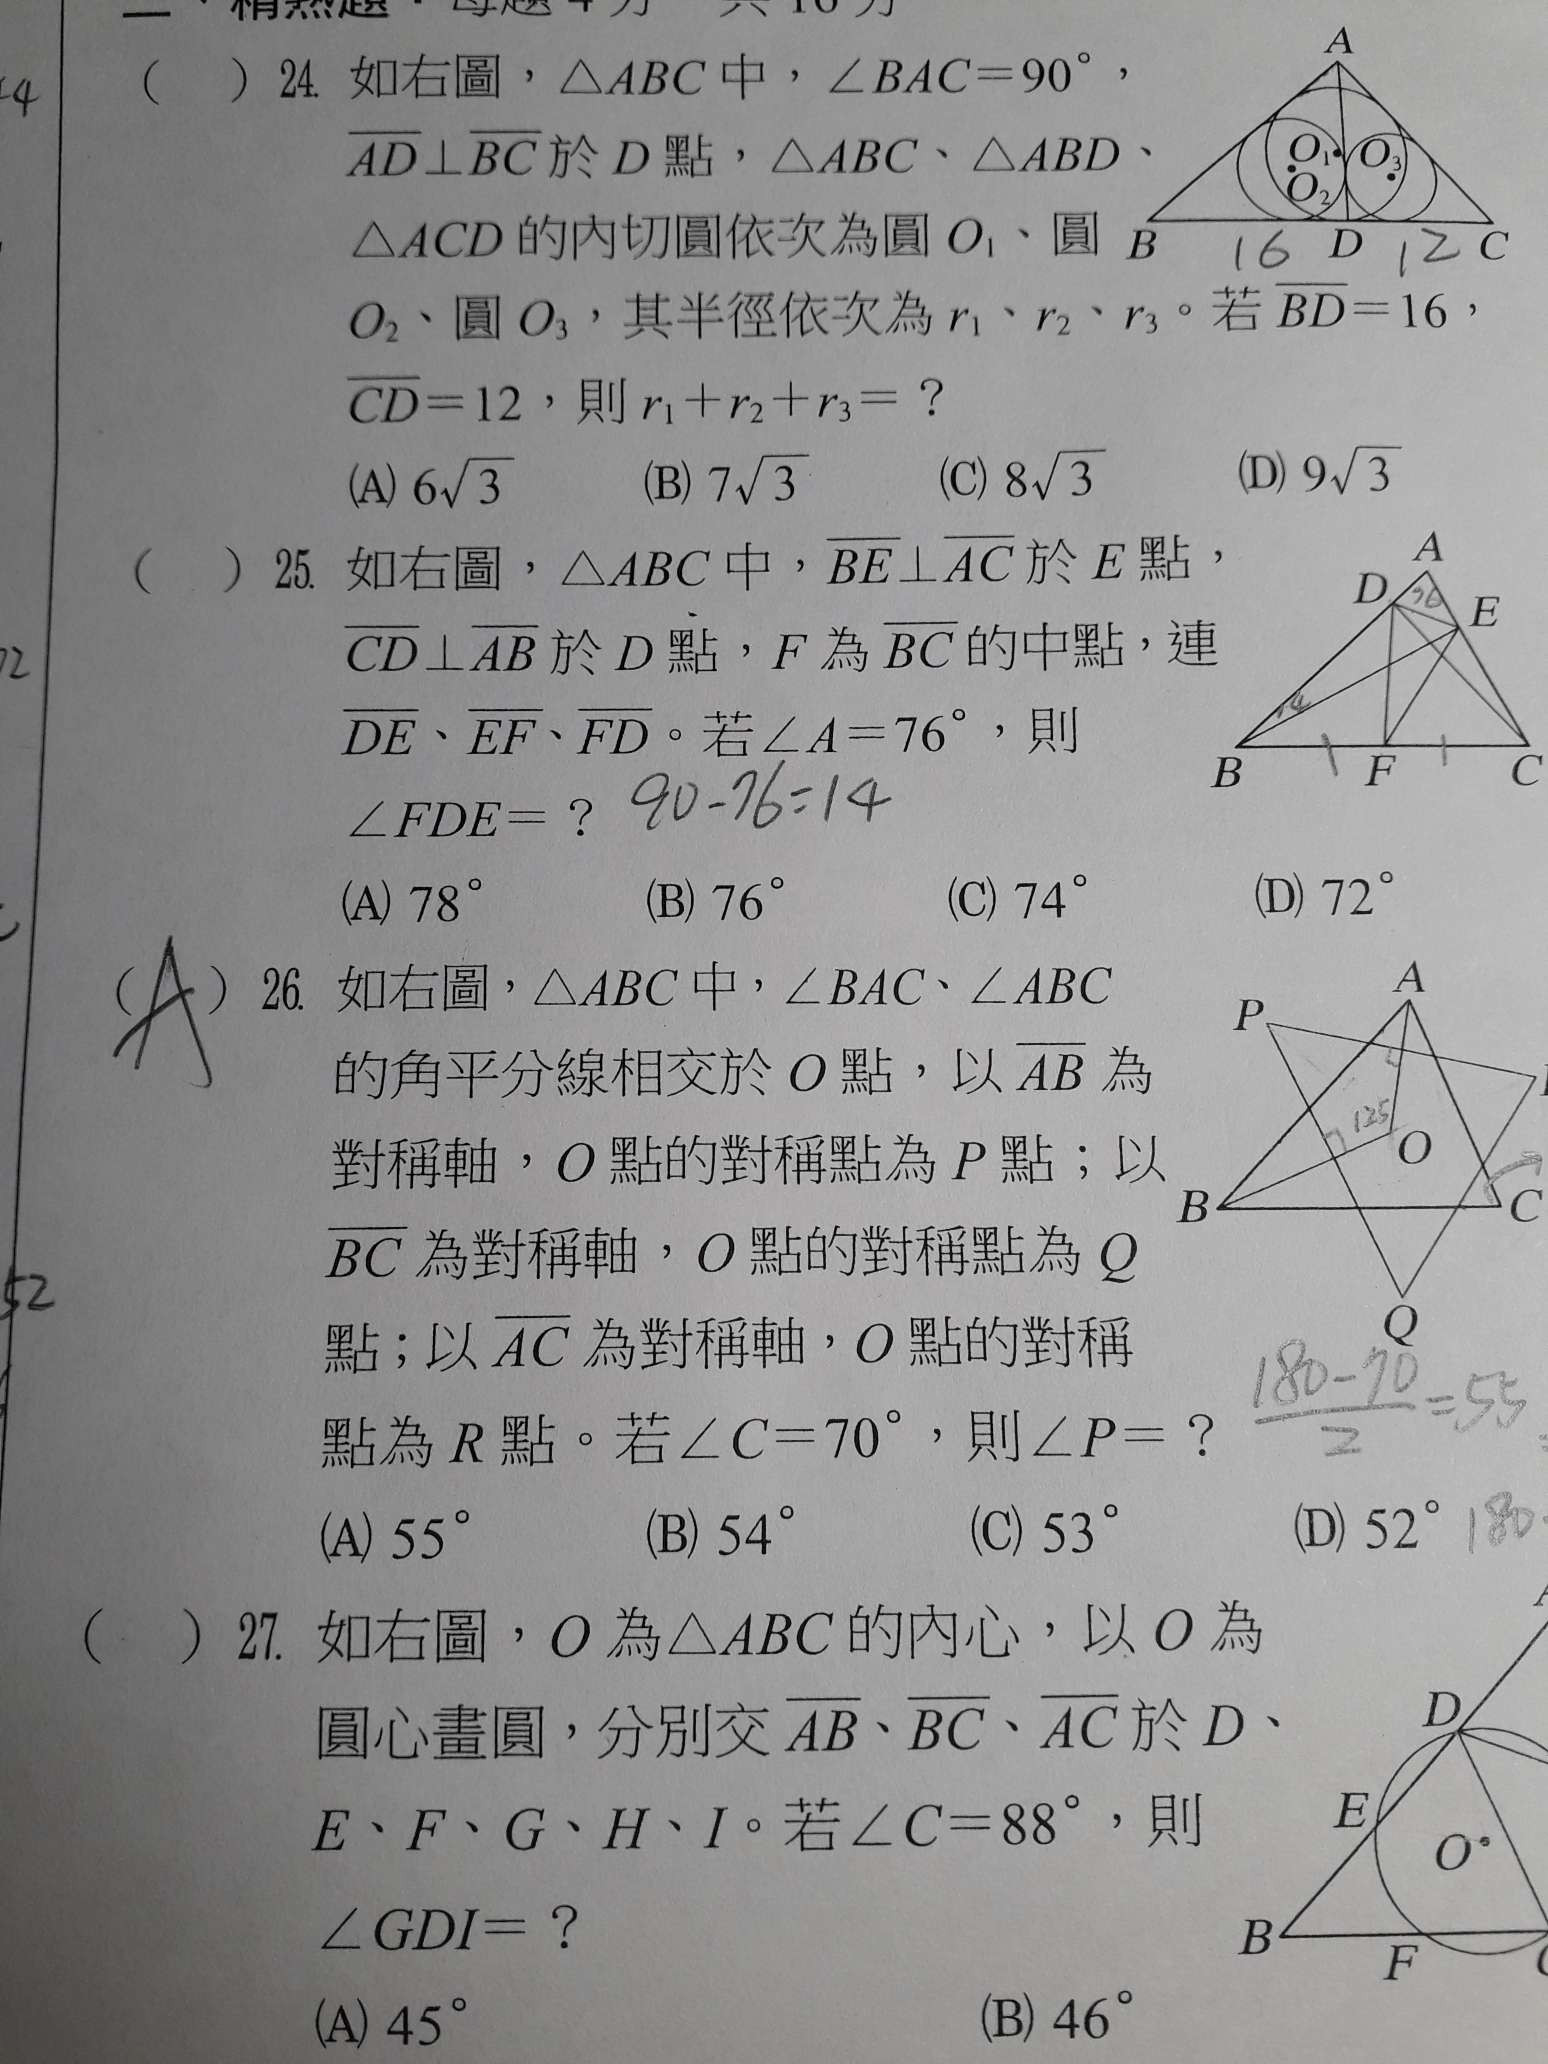 二、精熟題：每題4分 共16分
( ) 24. 如右圖，△ABC 中，∠BAC＝90°，
AD⊥BC 於 D 點，△ABC、△ABD、
△ACD 的內切圓依次為圓 O₁、圓
O₂、圓 O₃，其半徑依次為 r₁、r₂、r₃。若 BD＝16，
CD＝12，則 r₁＋r₂＋r₃＝？
(A) 6√3 (B) 7√3 (C) 8√3 (D) 9√3
A
O₁ O₃
O₂
B 16 D 12 C
( ) 25. 如右圖，△ABC 中，BE⊥AC 於 E 點，
CD⊥AB 於 D 點，F 為 BC 的中點，連
DE、EF、FD。若∠A＝76°，則
∠FDE＝？ 90-76=14
(A) 78° (B) 76° (C) 74° (D) 72°
A
D 76 E
14
B F C
(A) 26. 如右圖，△ABC 中，∠BAC、∠ABC
的角平分線相交於 O 點，以 AB 為
對稱軸，O 點的對稱點為 P 點；以
BC 為對稱軸，O 點的對稱點為 Q
點；以 AC 為對稱軸，O 點的對稱
點為 R 點。若∠C＝70°，則∠P＝？
(A) 55° (B) 54° (C) 53° (D) 52°
A
P
125
O
B C
Q
180-70
2
=55
180
( ) 27. 如右圖，O 為△ABC 的內心，以 O 為
圓心畫圓，分別交 AB、BC、AC 於 D、
E、F、G、H、I。若∠C＝88°，則
∠GDI＝？
(A) 45° (B) 46°
D
E
O
B F
52